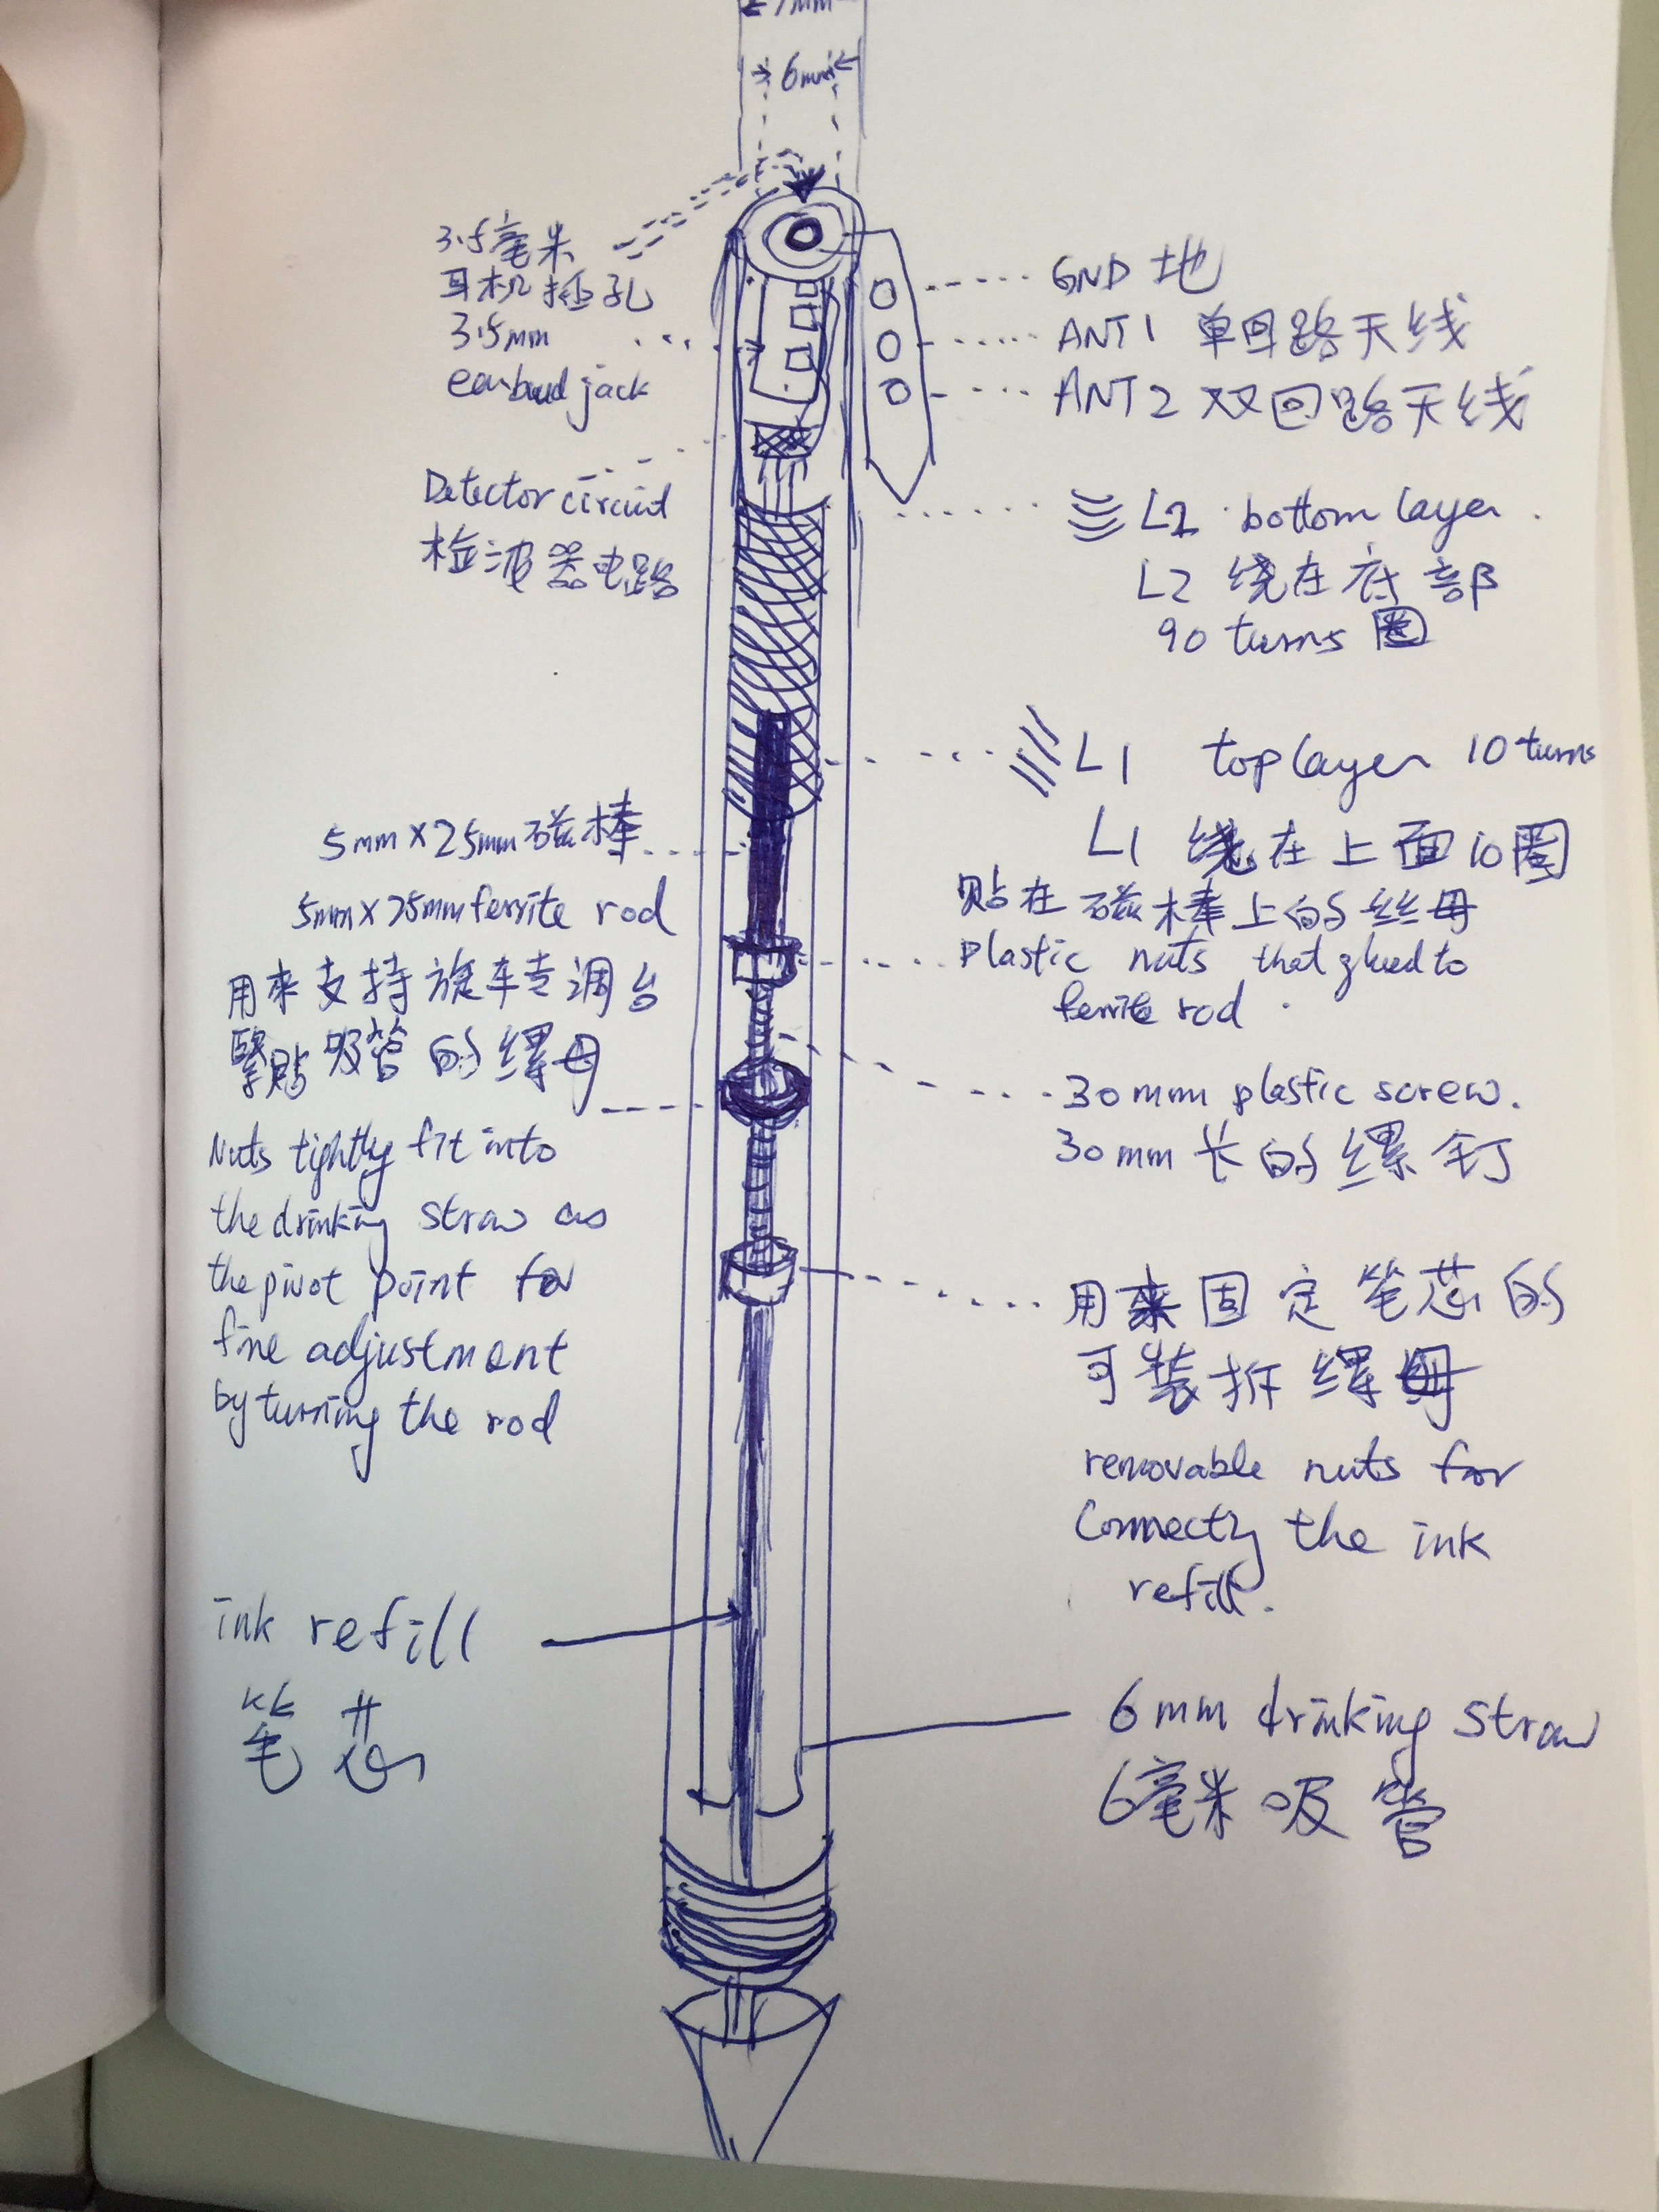 3.5毫米
耳机插孔
3.5mm
earbud jack
Detector circuit
检波器电路
5mm x 25mm 磁棒
5mm x 25mm ferrite rod
用来支持旋转调台
紧贴吸管的螺母
Nuts tightly fit into
the drinking straw as
the pivot point for
fine adjustment
by turning the rod
ink refill
笔芯
6mm
GND 地
ANT 1 单回路天线
ANT 2 双回路天线
L2 bottom layer.
L2 绕在底部
90 turns 圈
L1 top layer 10 turns
L1 绕在上面10圈
贴在磁棒上的丝母
plastic nuts that glued to
ferrite rod.
30mm plastic screw.
30mm 长的螺钉
用来固定笔芯的
可装拆螺母
removable nuts for
Connecting the ink
refill.
6mm drinking straw
6毫米吸管